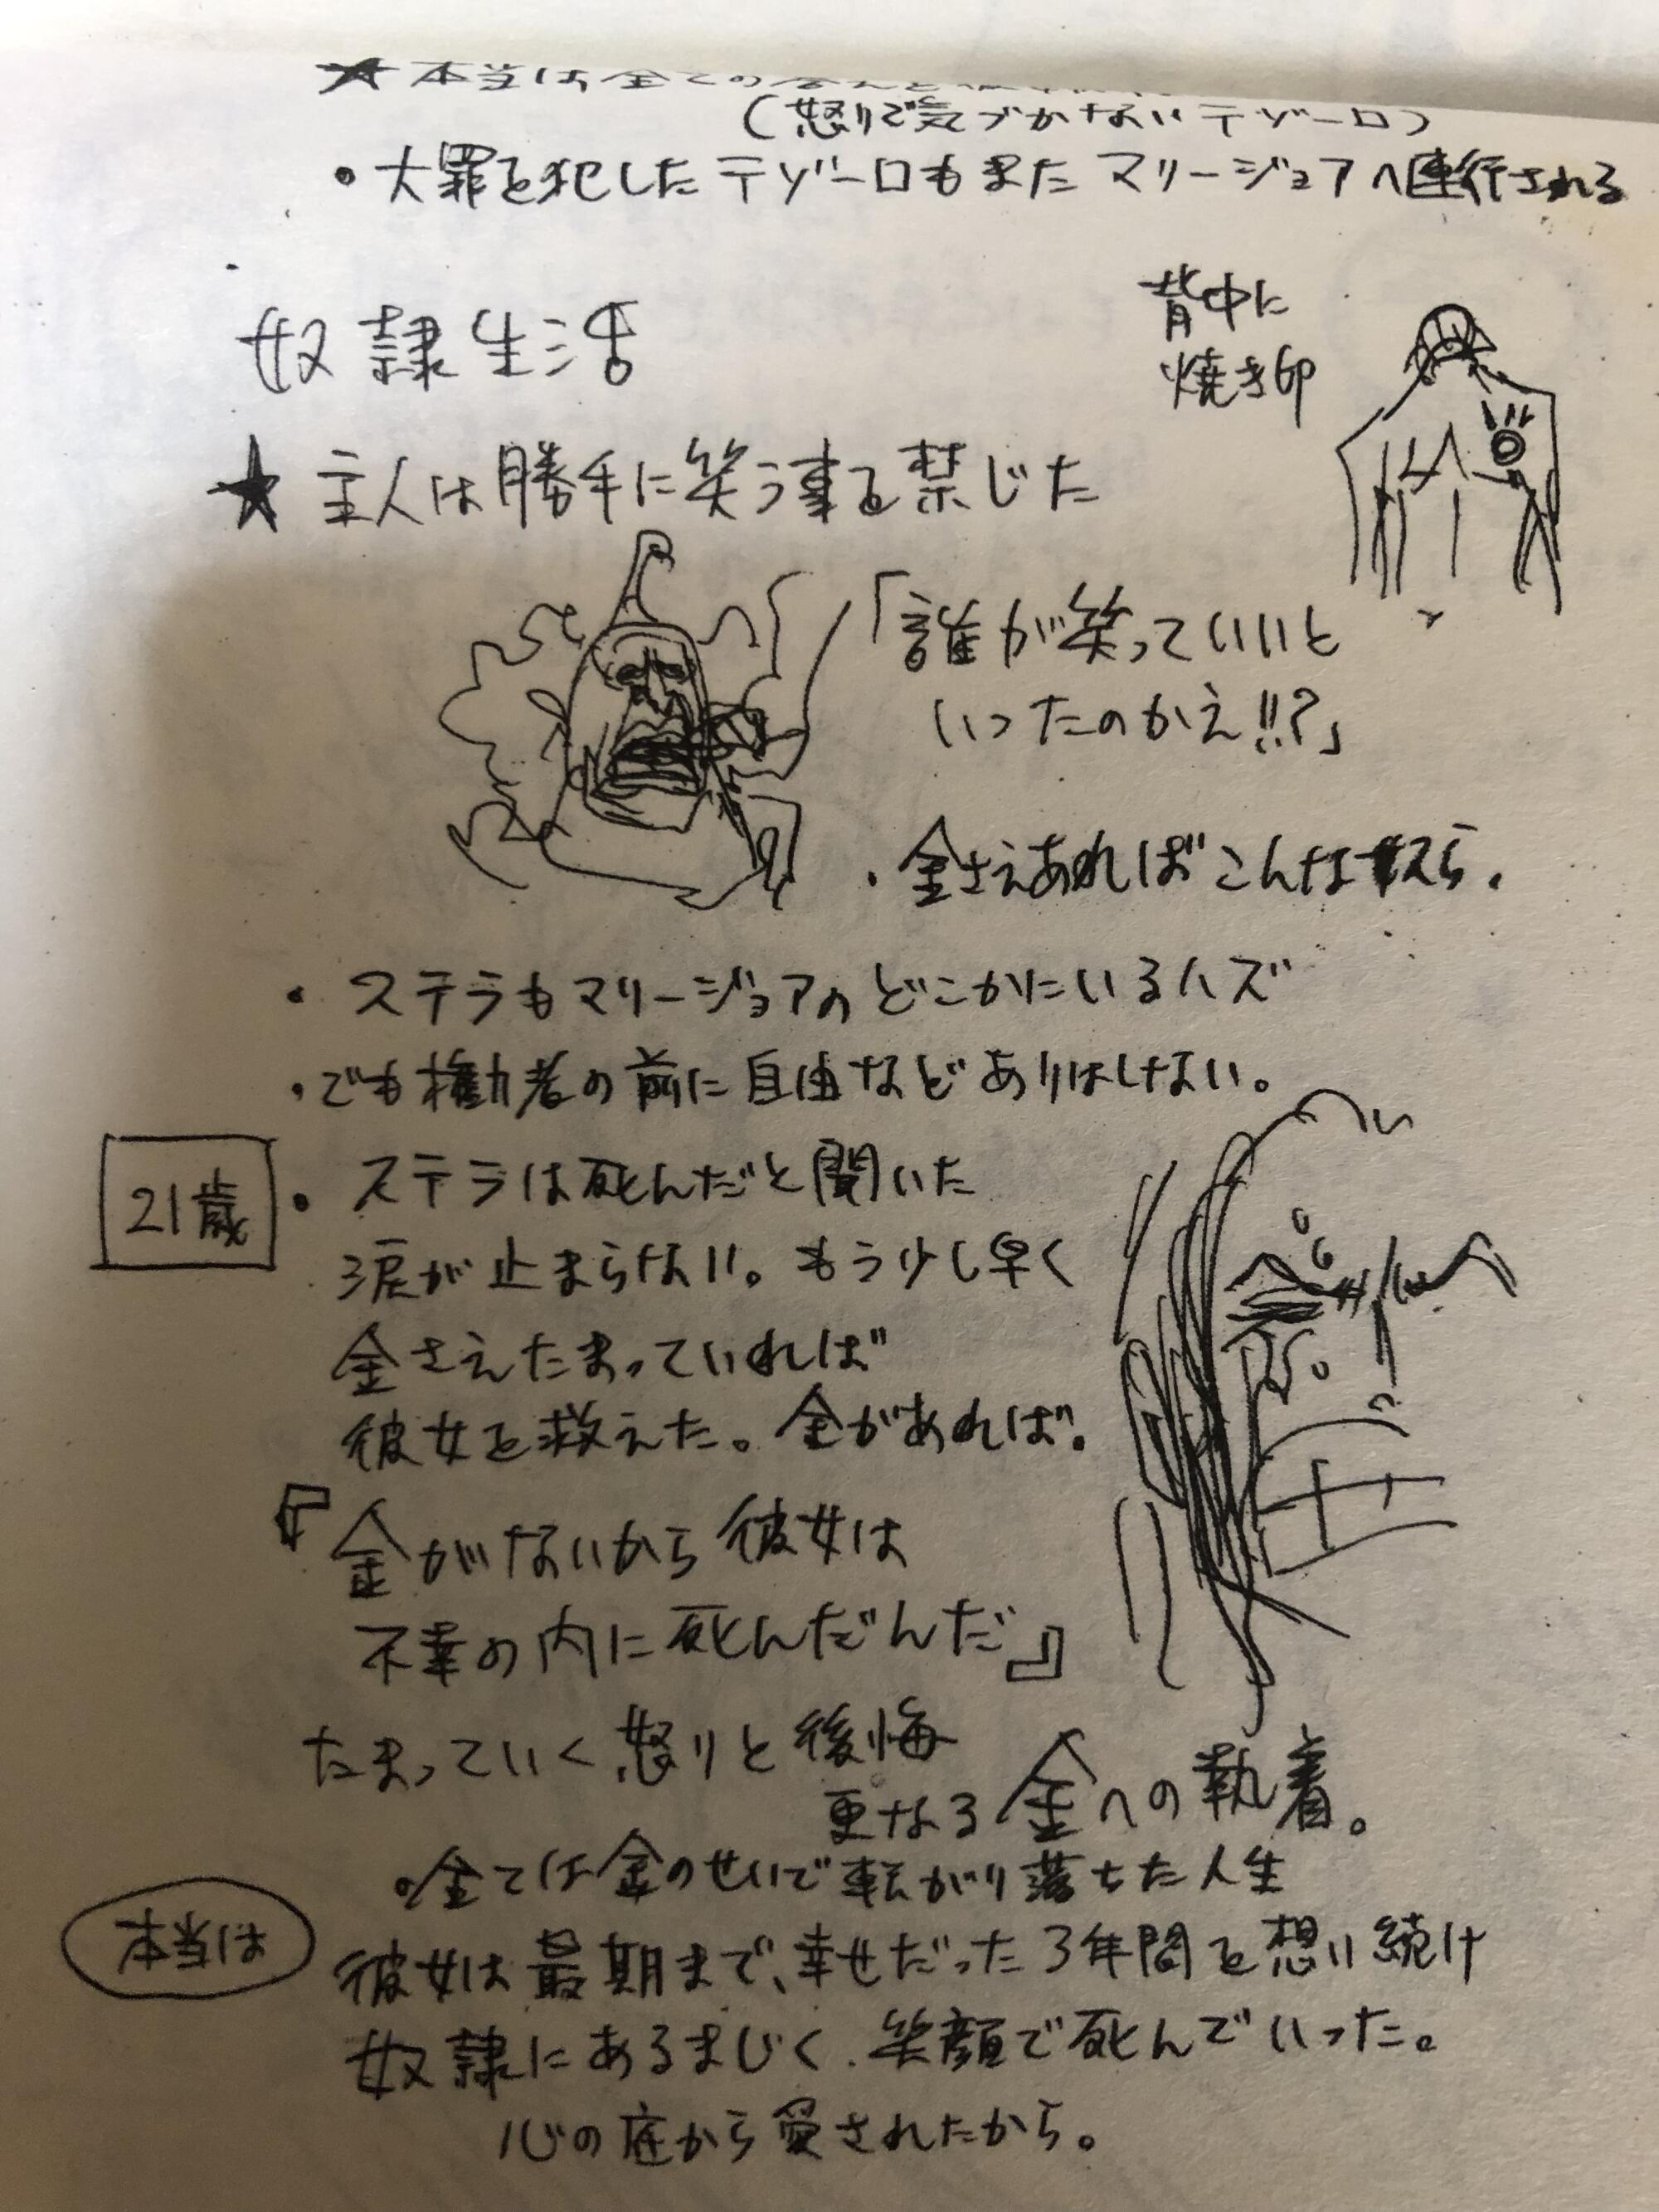 ★ 本当は全ての
(怒りで気づかないテゾーロ)
・大罪を犯したテゾーロもまたマリージョアへ連行される
背中に
焼き印
奴隷生活
★ 主人は勝手に笑う事を禁じた
「誰が笑っていいと
いったのかえ!!?」
・金さえあればこんな奴すら。
・ステラもマリージョアのどこかにいるハズ
・でも権力者の前に自由などありはしない。
21歳
・ステラは死んだと聞いた
涙が止まらない。もう少し早く
金さえたまっていれば
彼女を救えた。金があれば。
『金がないから彼女は
不幸の内に死んだんだ』
たまっていく怒りと後悔
更なる金への執着。
・全ては金のせいで転がり落ちた人生
本当は
彼女は最期まで、幸せだった3年間を想い続け
奴隷にあるまじく、笑顔で死んでいった。
心の底から愛されたから。